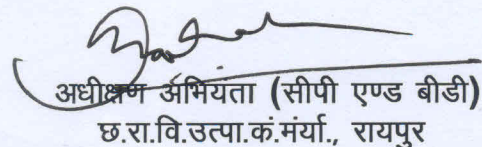 अधीक्षण अभियता (सीपी एण्ड बीडी)
छ.रा.वि.उत्पा.कं.मंर्या., रायपुर